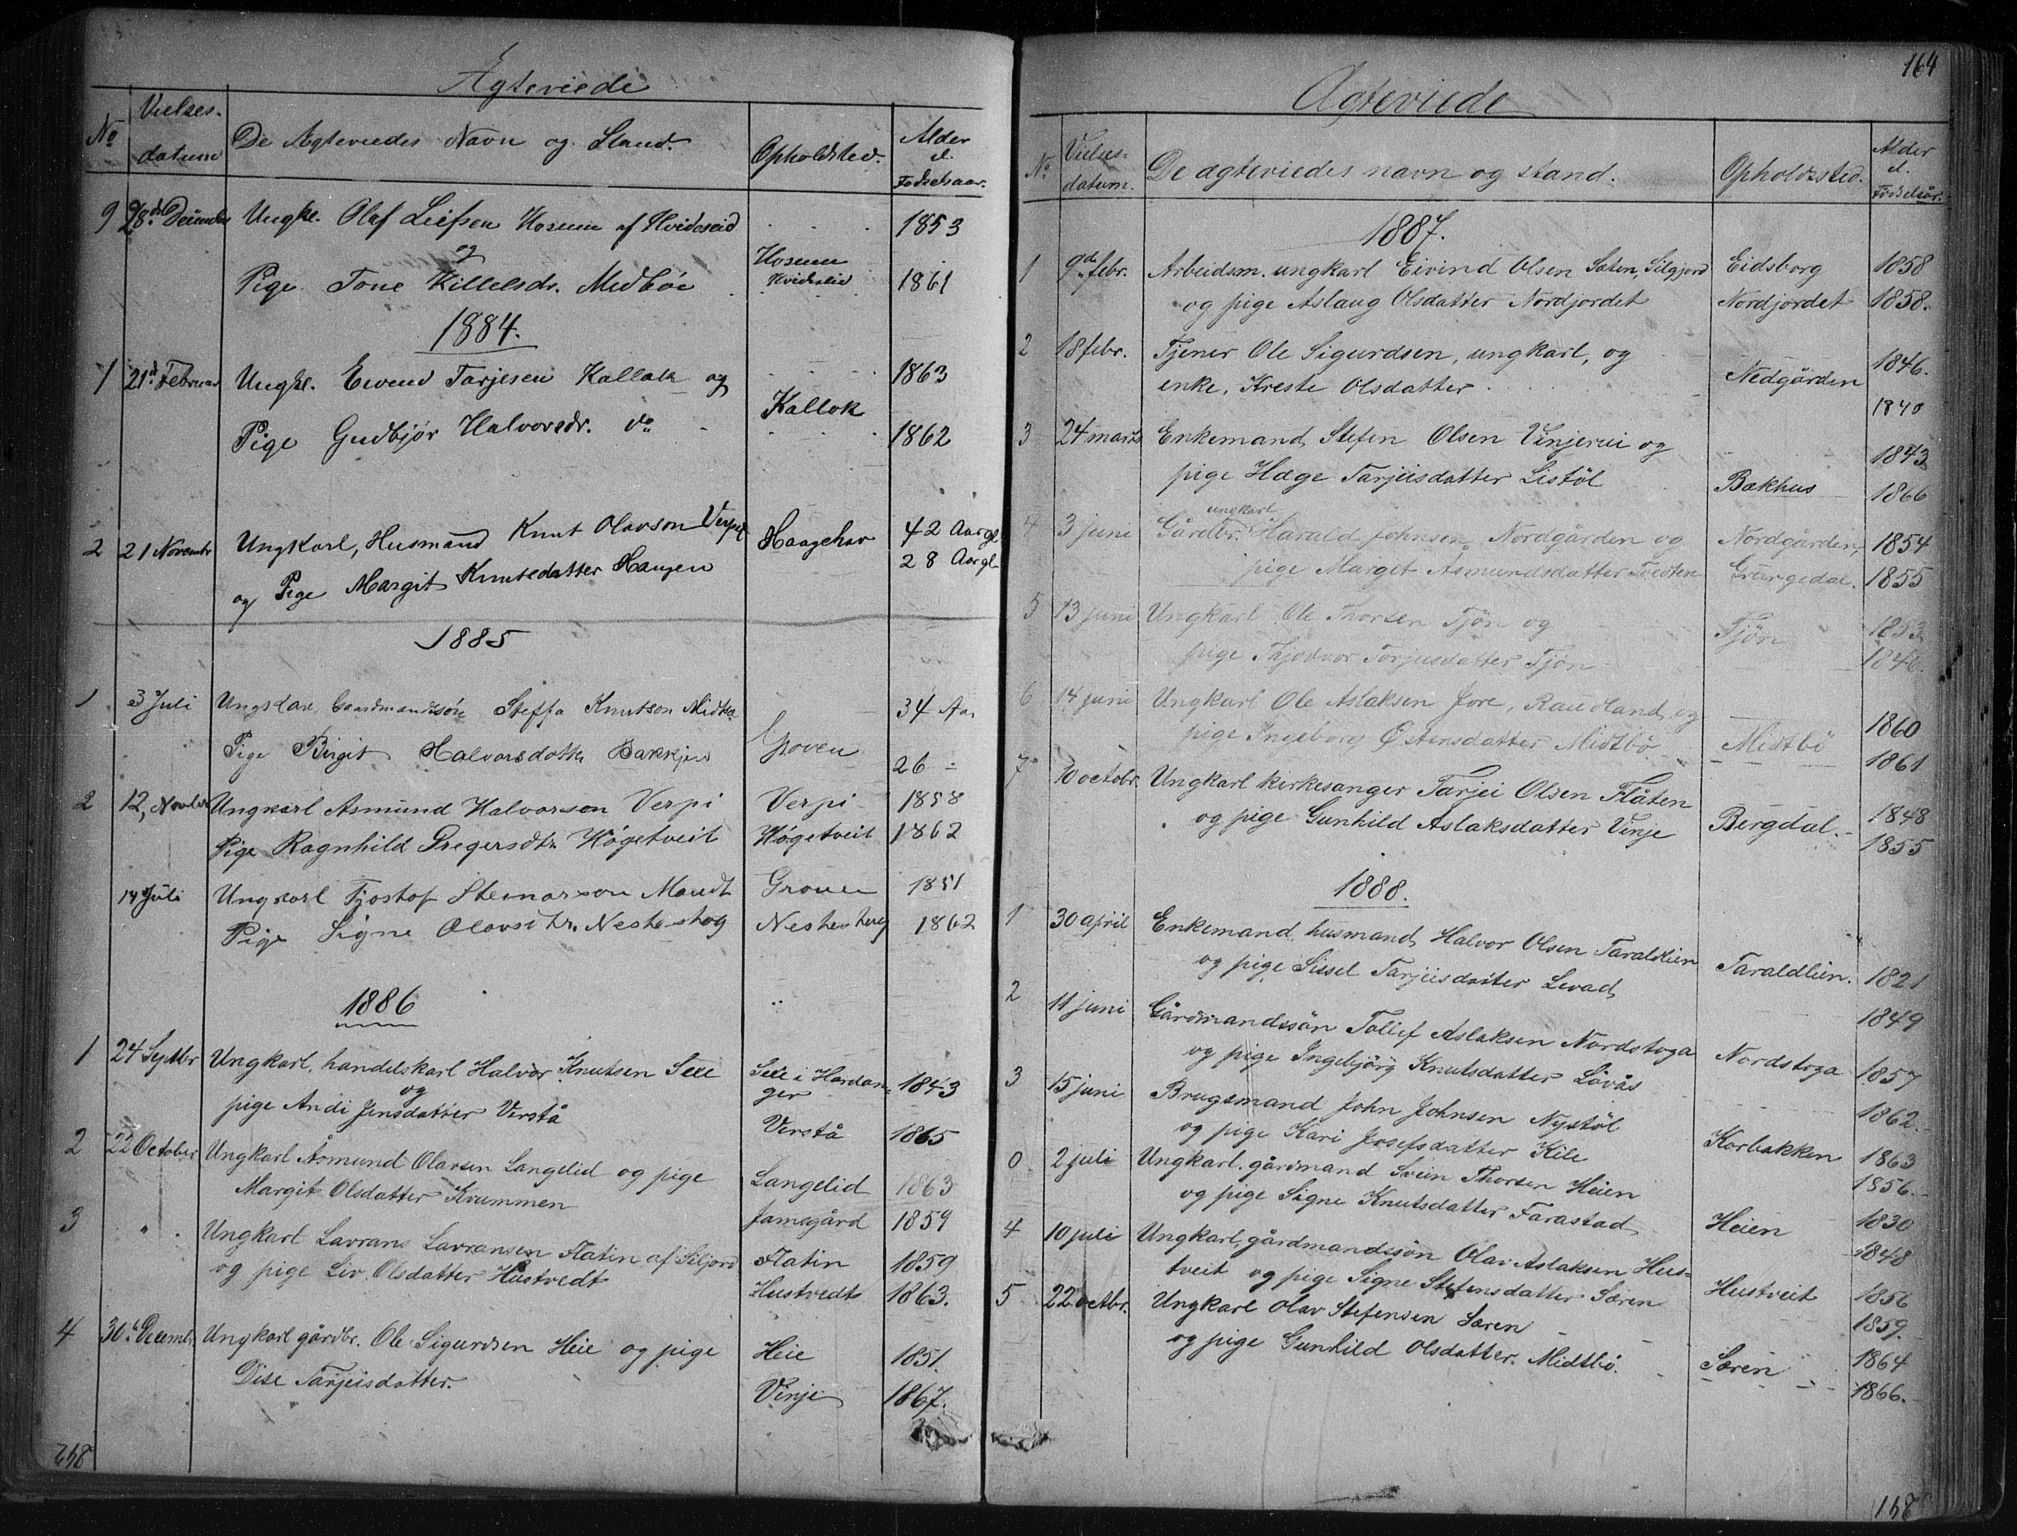 Ægteviede
No
Vielses-
datum
De Ægteviedes Navn og Stand.
Opholdsted.
Alder
el.
Fødselsaar.
9 28de December Ungkl. Olaf Leifsen Hosum af Hvideseid 1853
og
Hosum
Hvideseid
Pige Tone Killelsdr. Medbøe 1861
1884.
1 21de Februar Ungkl. Evend Tarjesen Kallok og 1863
Kallok
Pige Gudbjør Halvorsdr. do 1862
2 21 Novembr Ungkarl, Husmand Knut Olavson Verpe Haagehav 42 Aar gl.
og Pige Margit Knutsdatter Haugen 28 Aar gl.
1885
1 3 Juli Gaardmandssøn Steffa Knutson 34 Aa.
Pige Birgit Halvorsdotter Groven 26
2 12, Novbr Ungkarl Asmund Halvorson Verpi Verpi 1858
Pige Ragnhild Gregersdtr Høgetveit Høgetveit 1862
14 Juli Ungkarl Tjostof Steinarson Mandt Groven 1851
Pige Signe Olavsdtr. Nestestog 1862
1886
1 24 Septbr Ungkarl, handelskarl Halvor Knutsen Sexe Sexe i Hardan- 1843
og ger
pige Andi Jensdatter Verstå Verstå 1865
2 22 October Ungkarl Åsmund Olavsen Langelid og pige Langelid 1863
Margit Olsdatter Krummen Jamsgård 1859
3 " Ungkarl Lavrans Lavransen Flatin af Siljord Flatin 1859
og pige Liv Olsdatter Hustvedt Hustvedt 1863.
4 30te Decembr. Ungkarl gårdbr. Ole Sigurdsen Heie og pige Heie 1851.
Dise Tarjeisdatter. Vinje 1867.
164
Ægteviede
No.
Vielses-
datum.
De ægteviedes navn og stand.
Opholdssted.
Alder
el.
Fødselsår.
1887.
1 9de febr. Arbeidsm. ungkarl Eivind Olsen Saten, Silgjord Eidsborg 1858
og pige Aslaug Olsdatter Nordjordet Nordjordet 1858.
2 18 febr. Tjener Ole Sigurdsen, ungkarl, og 1846.
enke, Kreste Olsdatter Nedgården 1840
3 24 marts Enkemand Stefen Olsen Vinjerui og 1843
pige Hæge Tarjeisdatter Listöl Bakhus 1866
ungkarl
4 3 juni Gårdbr. Harald Johnsen Nordgården og Nordgården, 1854
pige Margit Asmundsdatter Tvedten Grungedal. 1855
5 13 juni Ungkarl Ole Thorsen Tjøn og Tjøn 1853
pige Thjodvor Torjusdatter Tjøn 1846.
6 14 juni Ungkarl Ole Aslaksen Jore, Rauland, og 1860
pige Ingeborg Østensdatter Midtbö Midtbö 1861
7 10 octobr. Ungkarl kirkesanger Tarjei Olsen Flåten 1848
og pige Gunhild Aslaksdatter Vinje Bergdal. 1855
1888.
1 30 april Enkemand, husmand, Halvor Olsen Taraldlien Taraldlien. 1821
og pige Sissel Tarjeisdatter Levad 1849
2 11 juni Gårdmandssön Tollef Aslaksen Nordstoga Nordstoga 1857
og pige Ingebjörg Knutsdatter Lövås 1862.
3 15 juni Brugsmand John Johnsen Nystöl Korbakken 1863
og pige Kari Josefsdatter Kile 1856.
0 2 juli Ungkarl. gårdmand Svein Thorsen Heien Heien 1830
og pige Signe Knutsdatter Farastad 1848
4 10 juli Ungkarl, gårdmandssön Olav Aslaksen Hus- Hustveit 1856
tveit og pige Signe Stefensdatter Særen 1859.
5 22 octbr. Ungkarl Olav Stefensen Særen Særen 1864
og pige Gunhild Olsdatter. Midtbö. 1866.